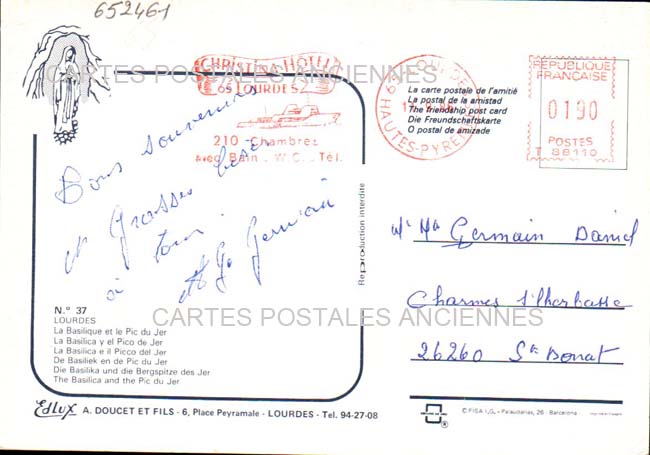 652461
CARTES POSTALES ANCIENNES
CHRISTINA HOTEL
65 LOURDES
210 Chambres
Avec Bain. W.C.. Tél.
LOURDES
HAUTES-PYRENEES
La carte postale de l'amitié
La postal de la amistad
The friendship post card
Die Freundschaftskarte
O postal de amizade
REPUBLIQUE
FRANÇAISE
0190
POSTES
T 88110
Bons souvenirs
et Grosses bises
à tous
Germain
Reproduction interdite
Germain Daniel
Charmes s/ l'herbasse
26260 St Donat
N.º 37
LOURDES
La Basilique et le Pic du Jer
La Basílica y el Pico de Jer
La Basilica e il Picco del Jer
De Basiliek en de Pic du Jer
Die Basilika und die Bergspitze des Jer
The Basilica and the Pic du Jer
CARTES POSTALES ANCIENNES
Edlux A. DOUCET ET FILS - 6, Place Peyramale - LOURDES - Tel. 94-27-08
© FISA I.G. - Palaudarias, 26 - Barcelona